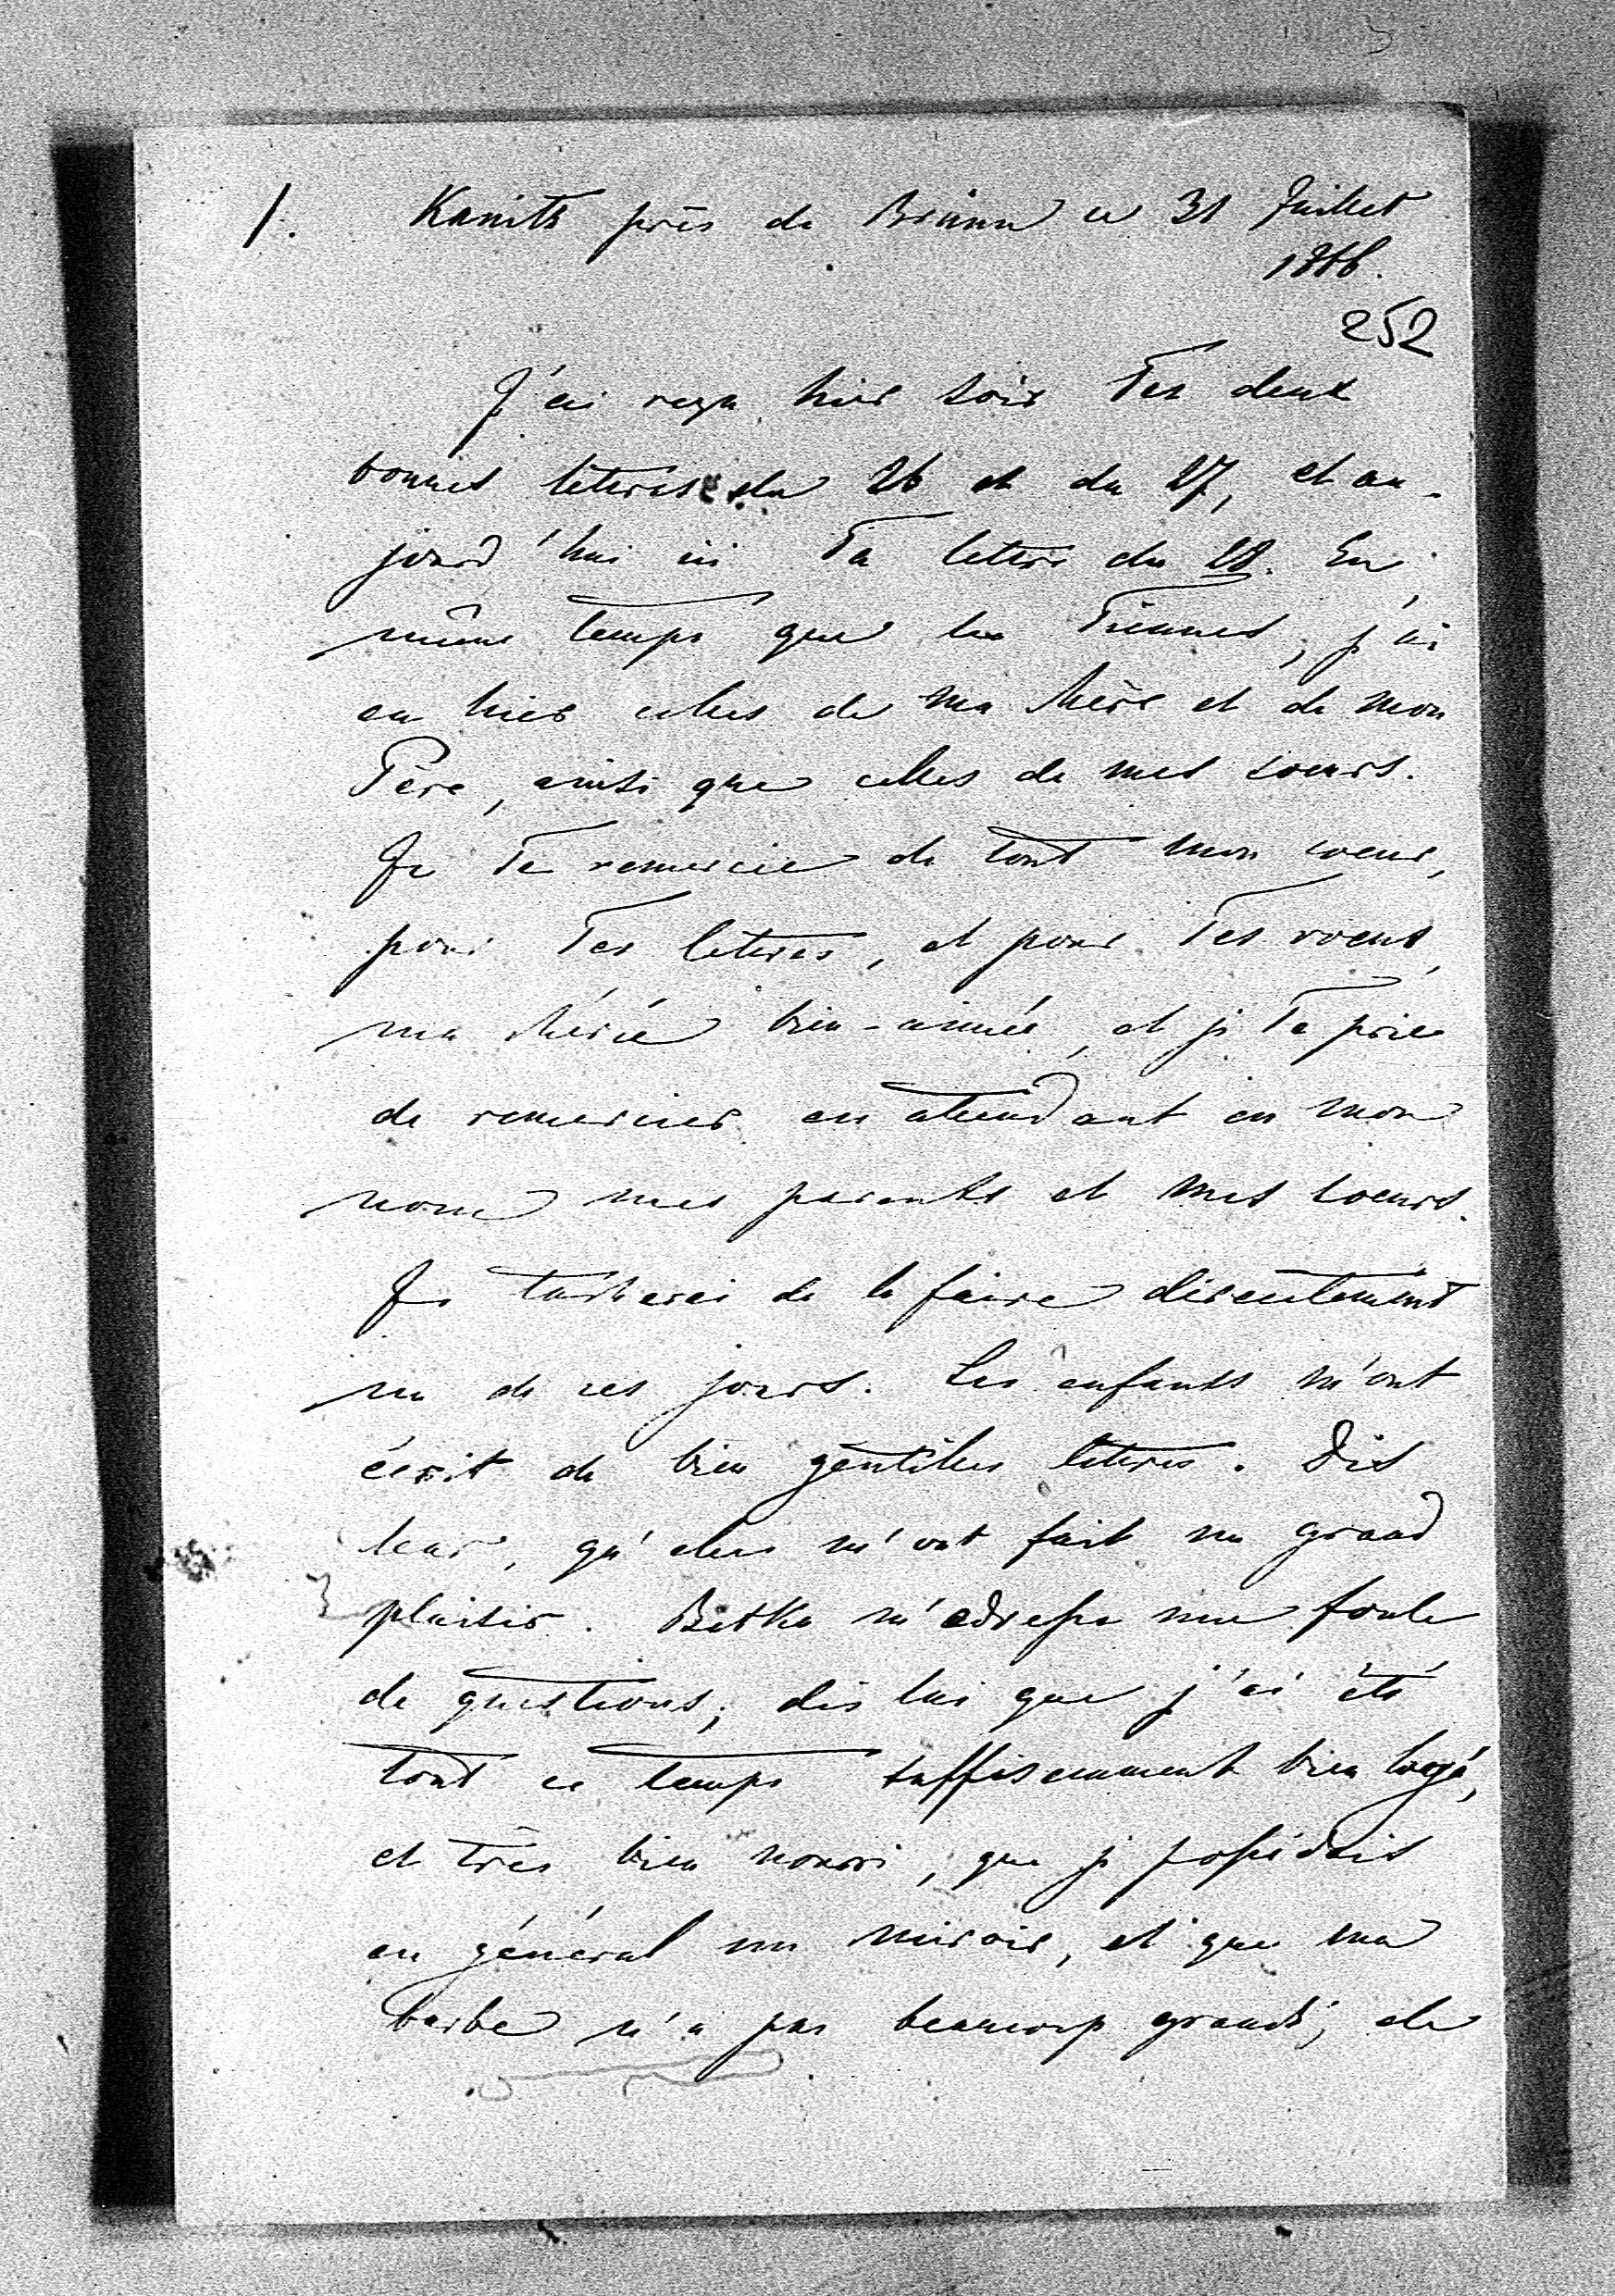 1. Kanitz près de Brünn ce 31 Juillet
1866.
252
J'ai reçu hier soir Tes deux
bonnes lettres du 26 et du 27, et au-
jourd'hui ici Ta lettre du 28. En
même temps que les Tiennes, j'ai
eu hier celles de ma Mère et de mon
Père, ainsi que celles de mes soeurs.
Je Te remercie de tout mon coeur,
pour Tes lettres, et pour Tes voeux,
ma chérie bien-aimée, et je Te prie
de remercier en attendant en mon
nom mes parents et mes soeurs.
Je tacherai de le faire directement
un de ces jours. Les enfants m'ont
écrit de bien gentilles lettres. Dis
leur, qu'elles m'ont fait un grand
plaisir. Betka m'adresse une foule
de questions; dis lui que j'ai été
tout ce temps suffisamment bien logé,
et très bien nourri, que je possédais
en général un miroir, et que ma
barbe n'a pas beaucoup grandi; elle